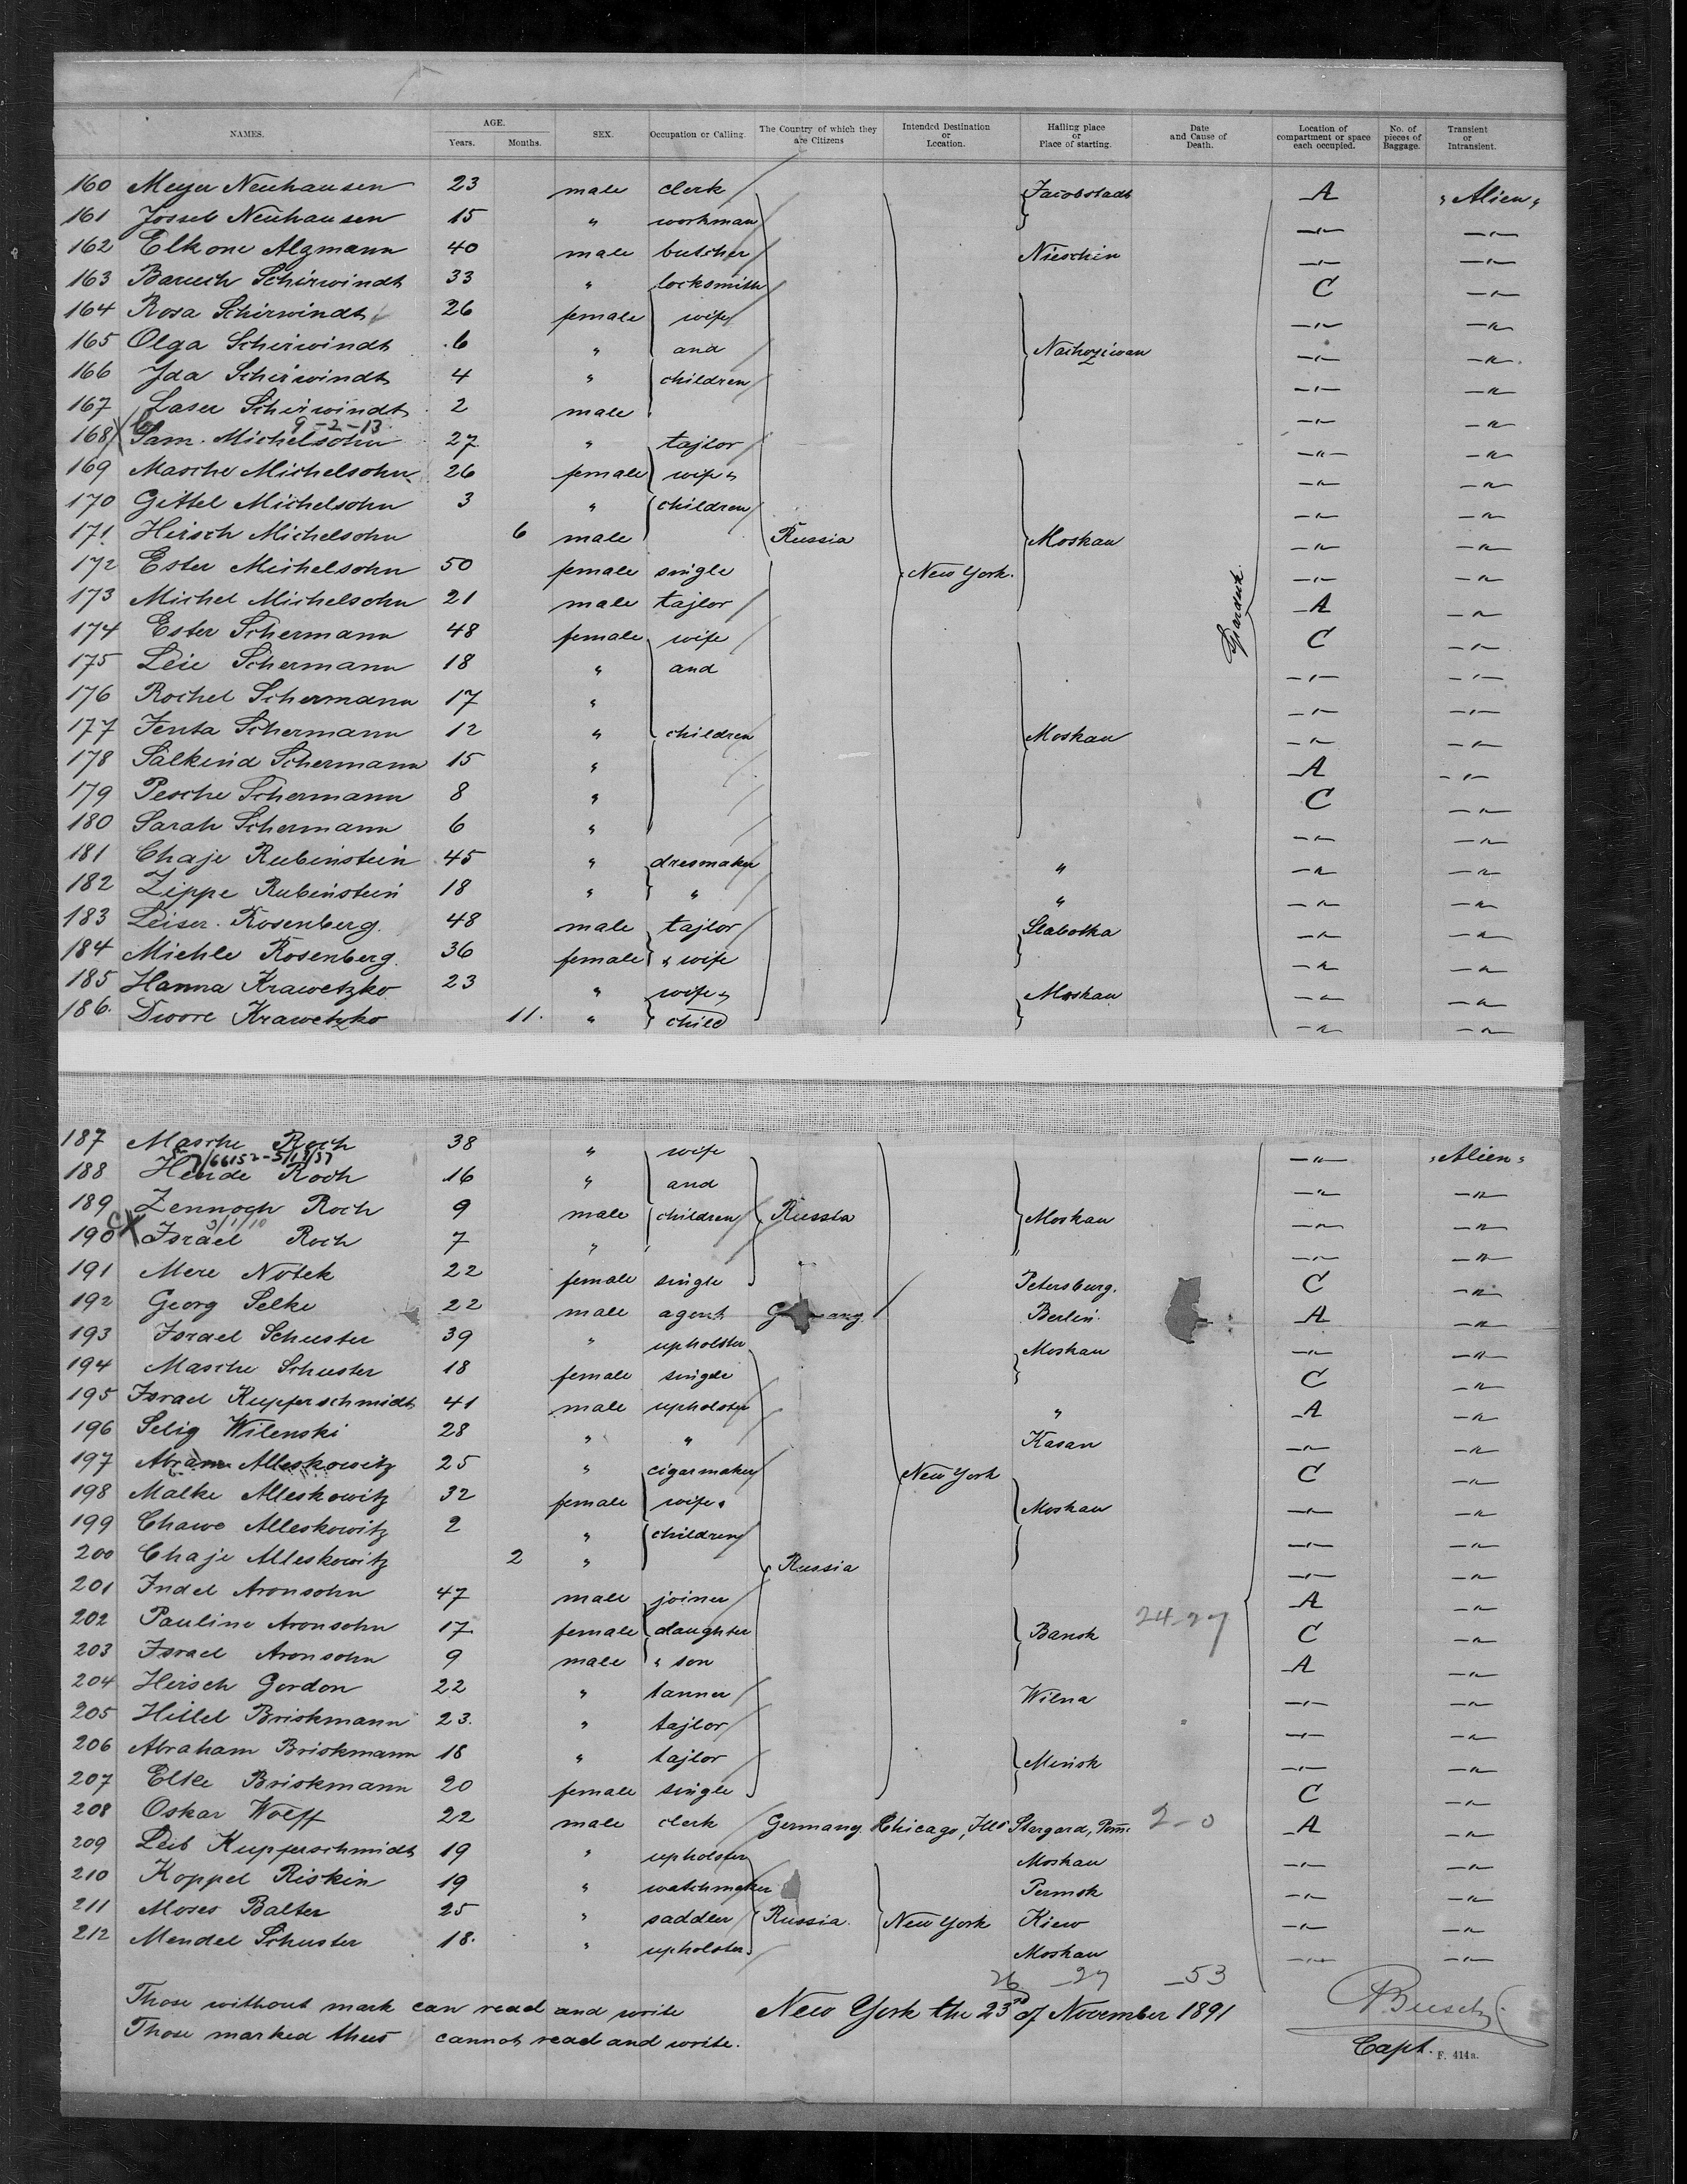 NAMES. AGE. Years. Months. SEX. Occupation or Calling. The Country of which they are Citizens Intended Destination or Location. Hailing place or Place of starting. Date and Cause of Death. Location of compartment or space each occupied. No. of pieces of Baggage. Transient or Intransient.
160 Meyer Neuhausen 23 male clerk Jacobstadt A "Alien"
161 Jossel Neuhausen 15 " workman —"— —"—
162 Elkone Algmann 40 male butcher Nieschin —"— —"—
163 Baruch Schirwindt 33 " locksmith C —"—
164 Rosa Schirwindt 26 female wife —"— —"—
165 Olga Schirwindt 6 " and Nachoziwan —"— —"—
166 Ida Schirwindt 4 " children —"— —"—
167 Laser Schirwindt 2 male —"— —"—
9-2-13
168 Sam. Michelsohn 27 " tajlor —"— —"—
169 Masche Michelsohn 26 female wife " —"— —"—
170 Gittel Michelsohn 3 " children —"— —"—
171 Hirsch Michelsohn 6 male Russia Moskau —"— —"—
172 Ester Michelsohn 50 female single New York. —"— —"—
173 Michel Michelsohn 21 male tajlor A —"—
174 Ester Schermann 48 female wife C —"—
175 Leie Schermann 18 " and —"— —"—
176 Rochel Schermann 17 " —"— —"—
177 Jenta Schermann 12 " children Moskau —"— —"—
178 Salkind Schermann 15 " A —"—
179 Pesche Schermann 8 " C —"—
180 Sarah Schermann 6 " —"— —"—
181 Chaje Rubinstein 45 " dresmaker " —"— —"—
182 Zippe Rubinstein 18 " " " —"— —"—
183 Leiser Rosenberg 48 male tajlor Slabotka —"— —"—
184 Michle Rosenberg 36 female " wife —"— —"—
185 Hanna Krawetzko 23 " wife " Moskau —"— —"—
186. Dwore Krawetzko 11. " child —"— —"—
187 Masche Roch 38 " wife —"— "Alien"
188 Hende Roch 16 " and —"— —"—
189 Zennoch Roch 9 male children Russia Moskau —"— —"—
3/1/10
190 Israel Roch 7 " —"— —"—
191 Mere Notek 22 female single Petersburg. C —"—
192 Georg Selke 22 male agent Berlin A —"—
193 Israel Schuster 39 " upholster Moskau —"— —"—
194 Masche Schuster 18 female single C —"—
195 Israel Kupferschmidt 41 male upholster " A —"—
196 Selig Wilenski 28 " " Kasan —"— —"—
197 Abram Alleskowitz 25 " cigarmaker New York C —"—
198 Malke Alleskowitz 32 female wife " Moskau —"— —"—
199 Chawe Alleskowitz 2 " children —"— —"—
200 Chaje Alleskowitz 2 " Russia —"— —"—
201 Indel Aronsohn 47 male joiner A —"—
202 Pauline Aronsohn 17 female daughter Bausk 24-27 C —"—
203 Israel Aronsohn 9 male " son A —"—
204 Hirsch Gordon 22 " tanner Wilna —"— —"—
205 Hillel Briskmann 23. " tajlor —"— —"—
206 Abraham Briskmann 18 " tajlor Minsk —"— —"—
207 Elke Briskmann 20 female single C —"—
208 Oskar Wolff 22 male clerk Germany. Chicago, Ills Stargard, Pom. 2-0 A —"—
209 Leib Kupferschmidt 19 " upholster Moskau —"— —"—
210 Koppel Riskin 19 " watchmaker Permsk —"— —"—
211 Moses Balter 25 " saddler Russia. New York Kiew —"— —"—
212 Mendel Schuster 18. " upholster Moskau —"— —"—
26 -27 -53
Those without mark can read and write New York the 23rd of November 1891
Those marked thus cannot read and write. Capt. F. 414a.